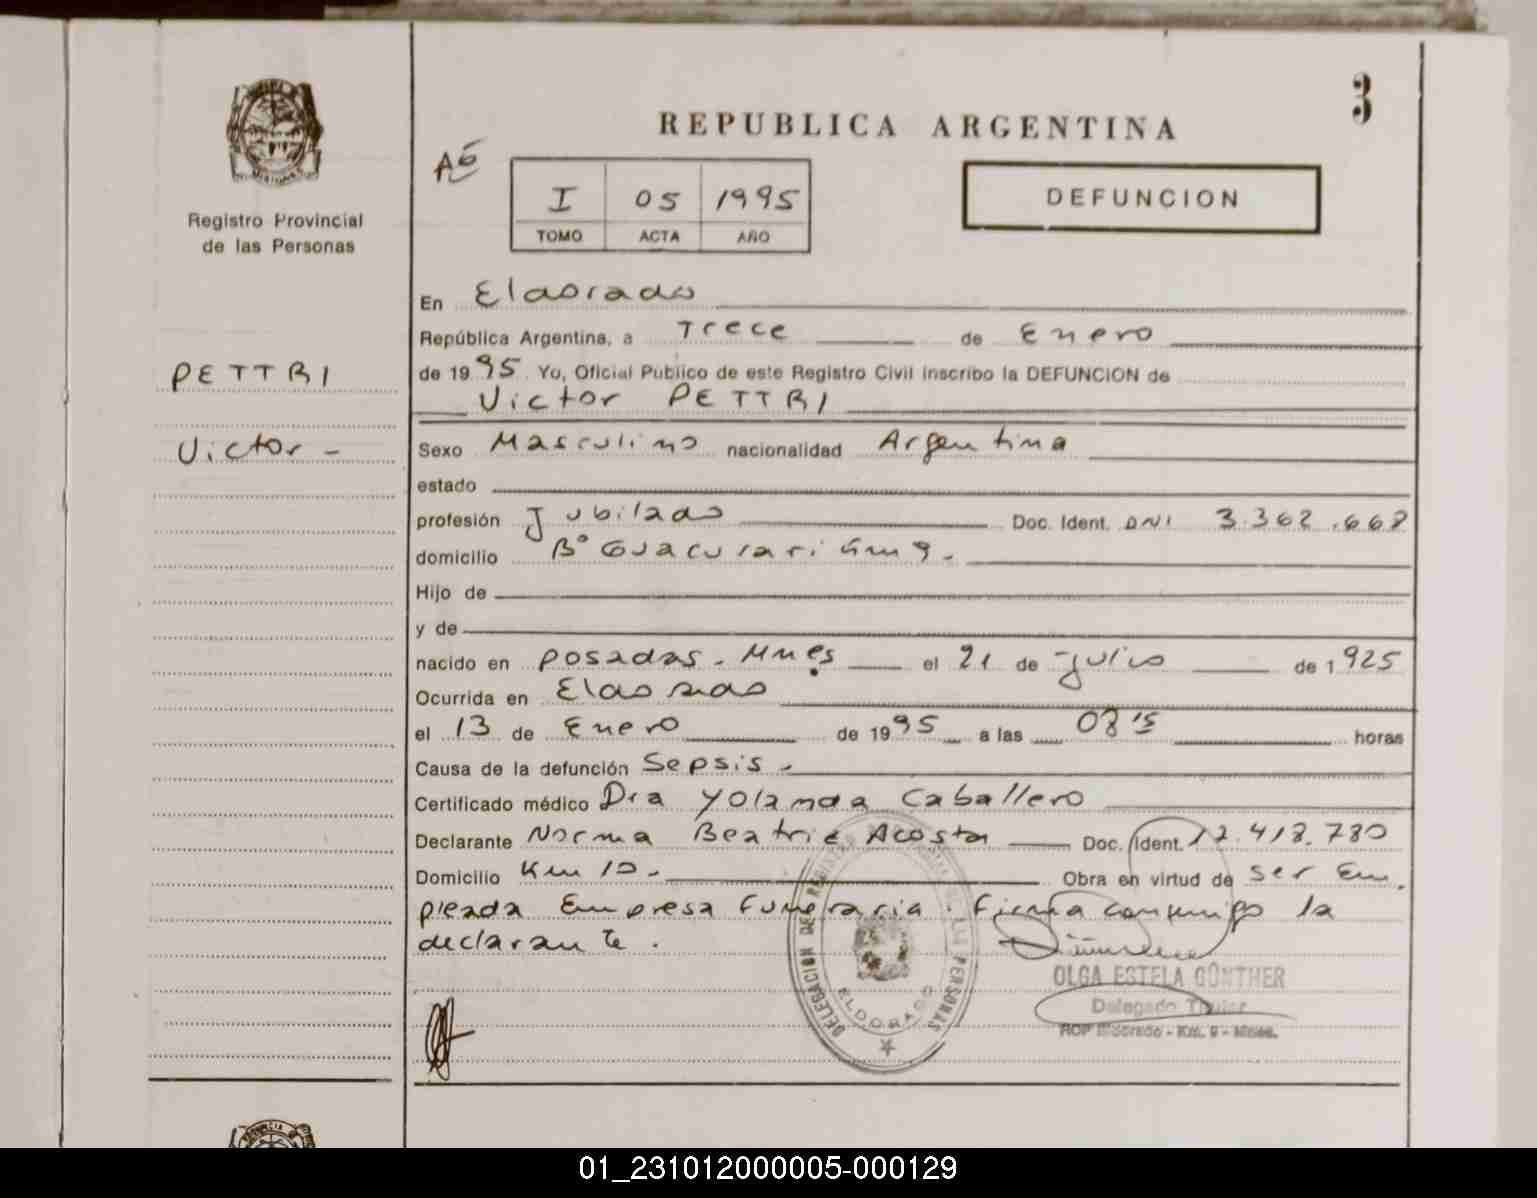 3
REPUBLICA ARGENTINA
I 05 1995
TOMO ACTA AÑO
DEFUNCION
Registro Provincial
de las Personas
PETTRI
Victor -
En Eldorado
República Argentina, a Trece de Enero
de 1995 Yo, Oficial Publico de este Registro Civil inscribo la DEFUNCION de
Victor PETTRI
Sexo Masculino nacionalidad Argentina
estado
profesión Jubilado Doc. Ident. DNI 3.362.668
domicilio B° Guacurari Km 9.
Hijo de
y de
nacido en Posadas. Mnes el 21 de Julio de 1925
Ocurrida en Eldorado
el 13 de Enero de 1995 a las 08 15 horas
Causa de la defunción Sepsis -
Certificado médico Dra Yolanda Caballero
Declarante Norma Beatriz Acosta Doc. Ident. 12.418.780
Domicilio Km 10. Obra en virtud de ser Em
pleada Empresa Funeraria. Firma conmigo la
declarante.
DELEGACION DE REGISTRO DE LAS PERSONAS
ELDORADO
OLGA ESTELA GÜNTHER
Delegado Titular
RCP Eldorado - Km. 9 - Mnes.
01_231012000005-000129